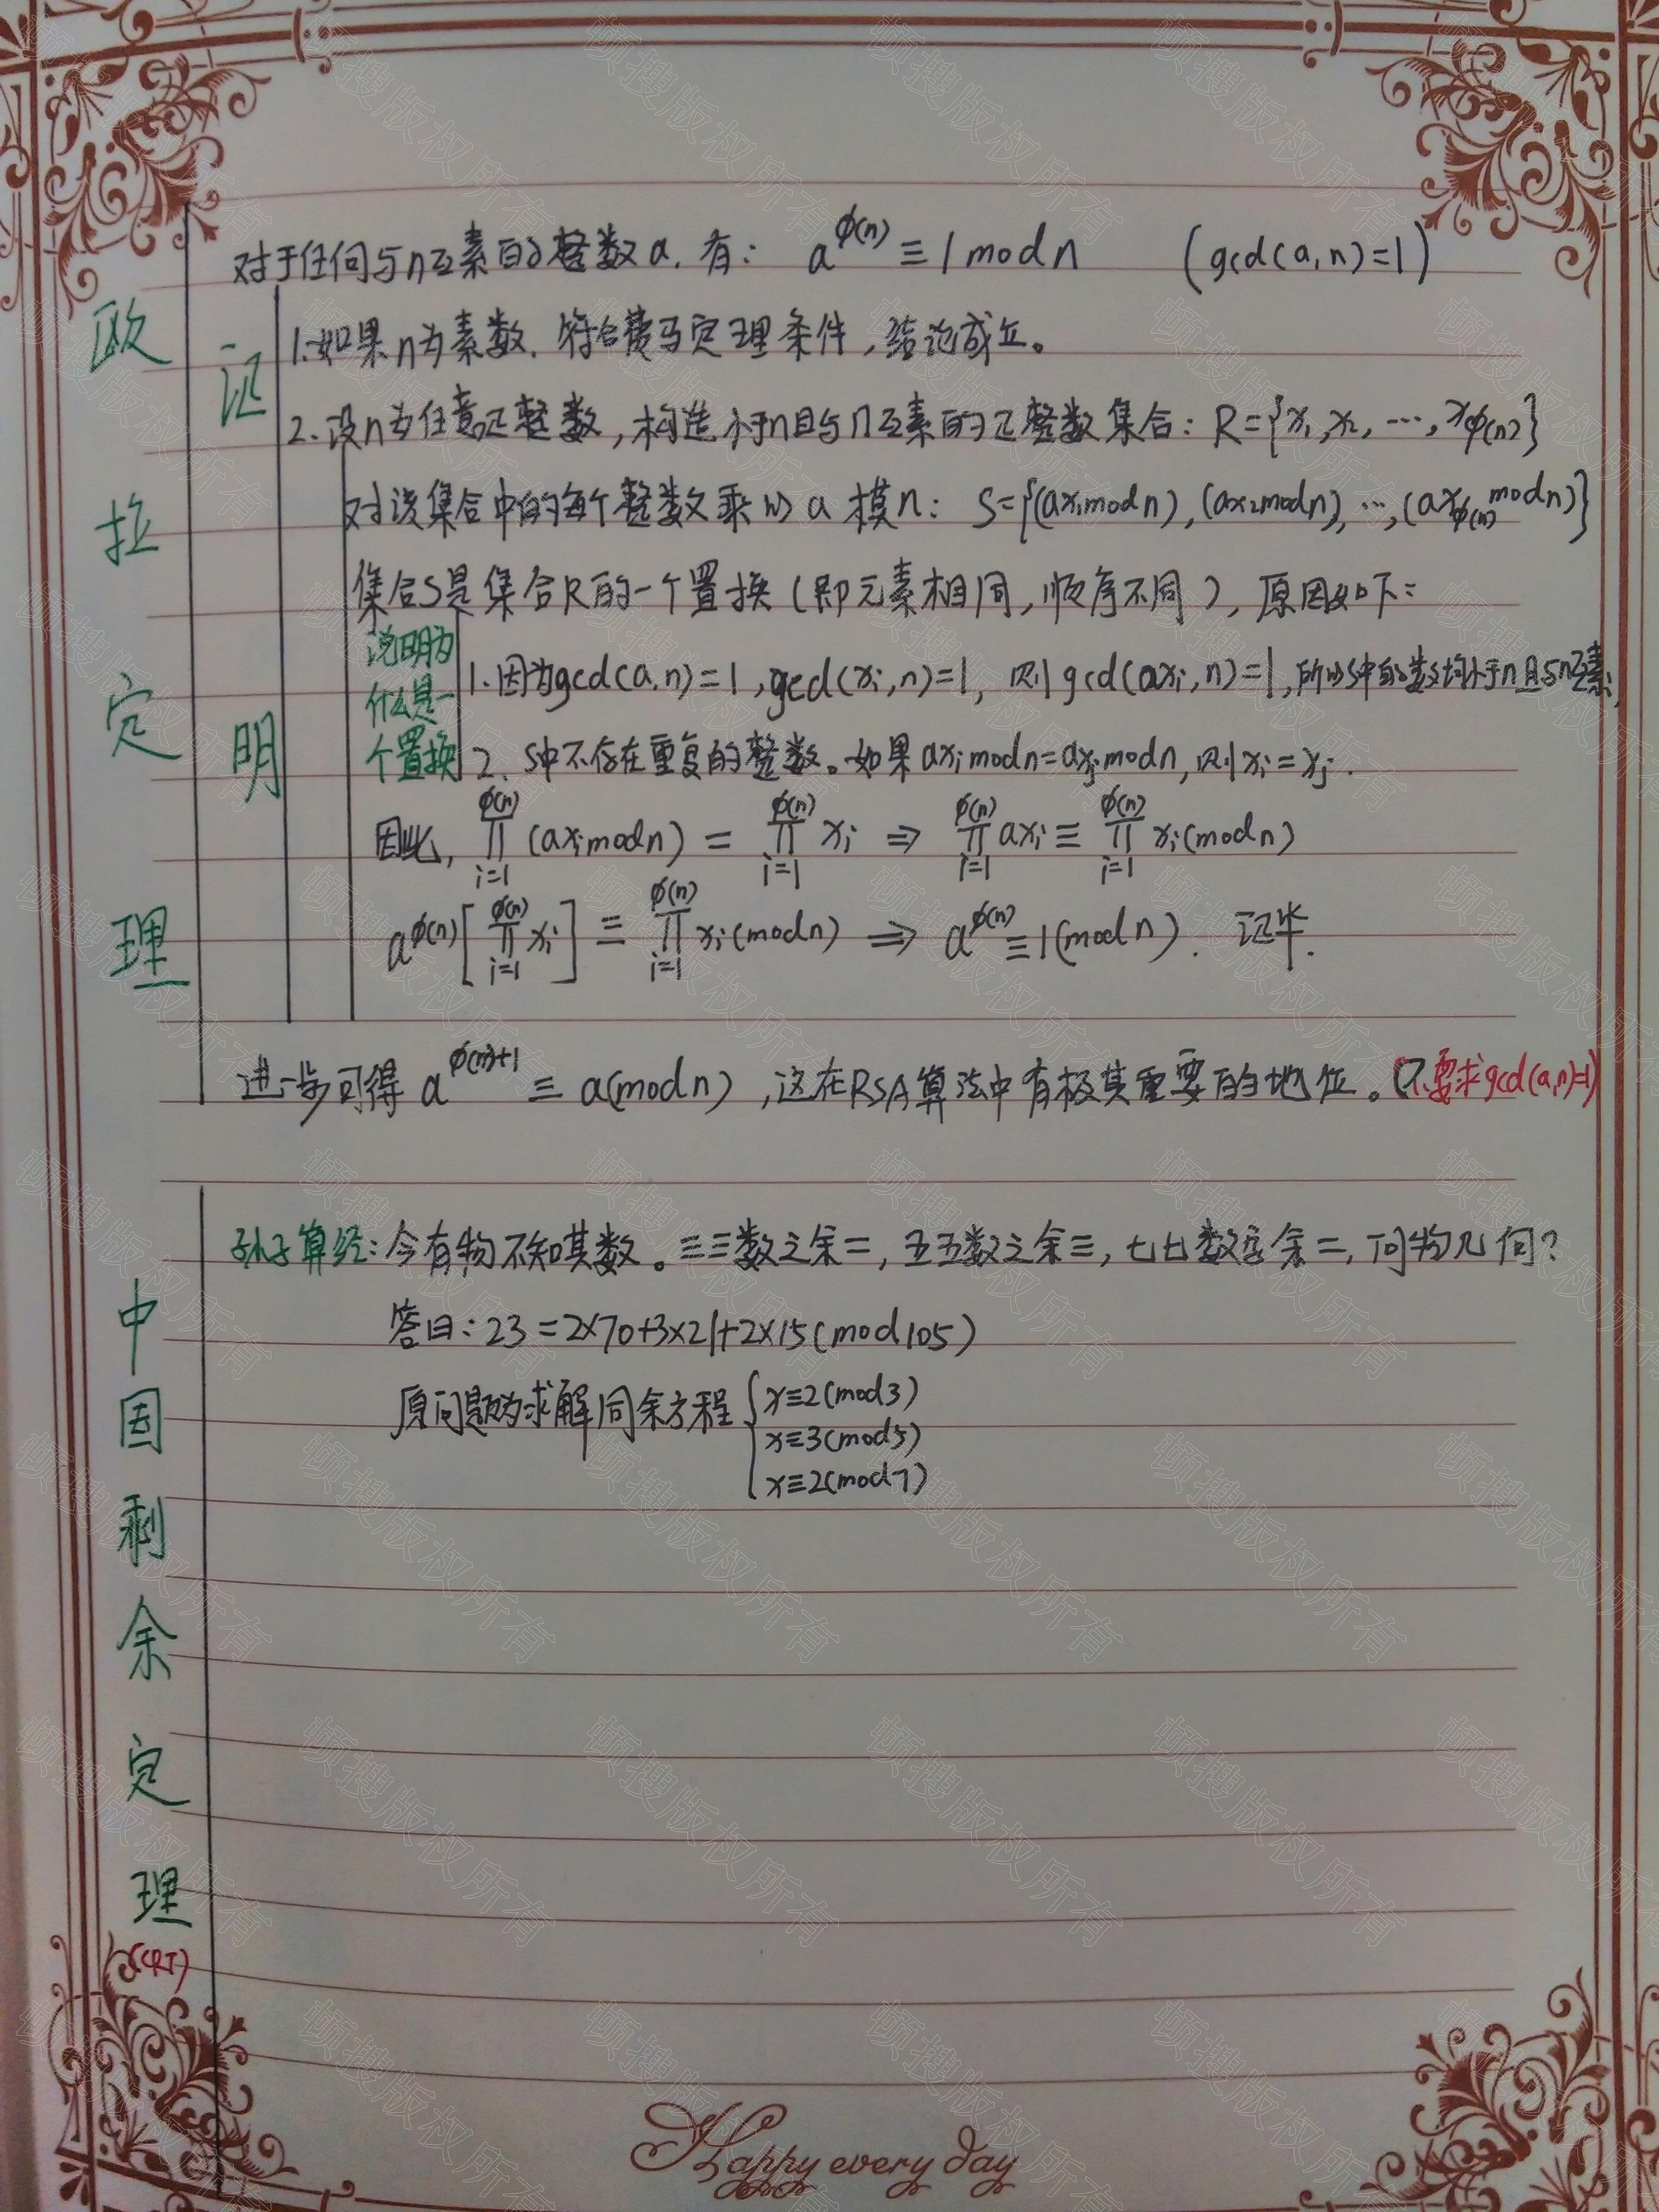 欧拉定理
对于任何与n互素的整数a,有: a^φ(n) ≡ 1 mod n (gcd(a,n)=1)
证明
1.如果n为素数,符合费马定理条件,结论成立。
2.设n为任意正整数,构造小于n且与n互素的正整数集合: R={x₁,x₂,…,x_φ(n)}
对该集合中的每个整数乘以a模n: S={(ax₁modn),(ax₂modn),…,(ax_φ(n) modn)}
集合S是集合R的一个置换(即元素相同,顺序不同),原因如下:
说明为什么是一个置换
1.因为gcd(a,n)=1,gcd(xᵢ,n)=1,则gcd(axᵢ,n)=1,所以S中的数均小于n且与n互素;
2.S中不存在重复的整数。如果axᵢmodn=axⱼmodn,则xᵢ=xⱼ.
因此, ∏_{i=1}^{φ(n)} (axᵢmodn) = ∏_{i=1}^{φ(n)} xᵢ ⇒ ∏_{i=1}^{φ(n)} axᵢ ≡ ∏_{i=1}^{φ(n)} xᵢ(modn)
a^φ(n) [∏_{i=1}^{φ(n)} xᵢ] ≡ ∏_{i=1}^{φ(n)} xᵢ(modn) ⇒ a^φ(n) ≡ 1(modn). 证毕.
进一步可得 a^φ(n)+1 ≡ a(modn),这在RSA算法中有极其重要的地位。(不要求gcd(a,n)=1)
中国剩余定理
(CRT)
孙子算经:今有物不知其数。三三数之余二,五五数之余三,七七数之余二,问物几何?
答曰:23=2×70+3×21+2×15(mod105)
原问题为求解同余方程{x≡2(mod3)
x≡3(mod5)
x≡2(mod7)
Happy every day
顿搜版权所有